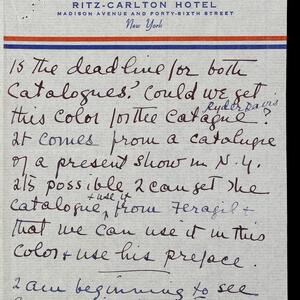 RITZ-CARLTON HOTEL
MADISON AVENUE AND FORTY-SIXTH STREET
New York
Is the deadline for both
Catalogues? Could we get
this color for the Ryder Davis Catague?
It comes from a catalogue
of a present show in N.Y.
Its possible I can get the
catalogue + use it from Feragil +
that we can use it in this
color + use his preface.
I am beginning to see